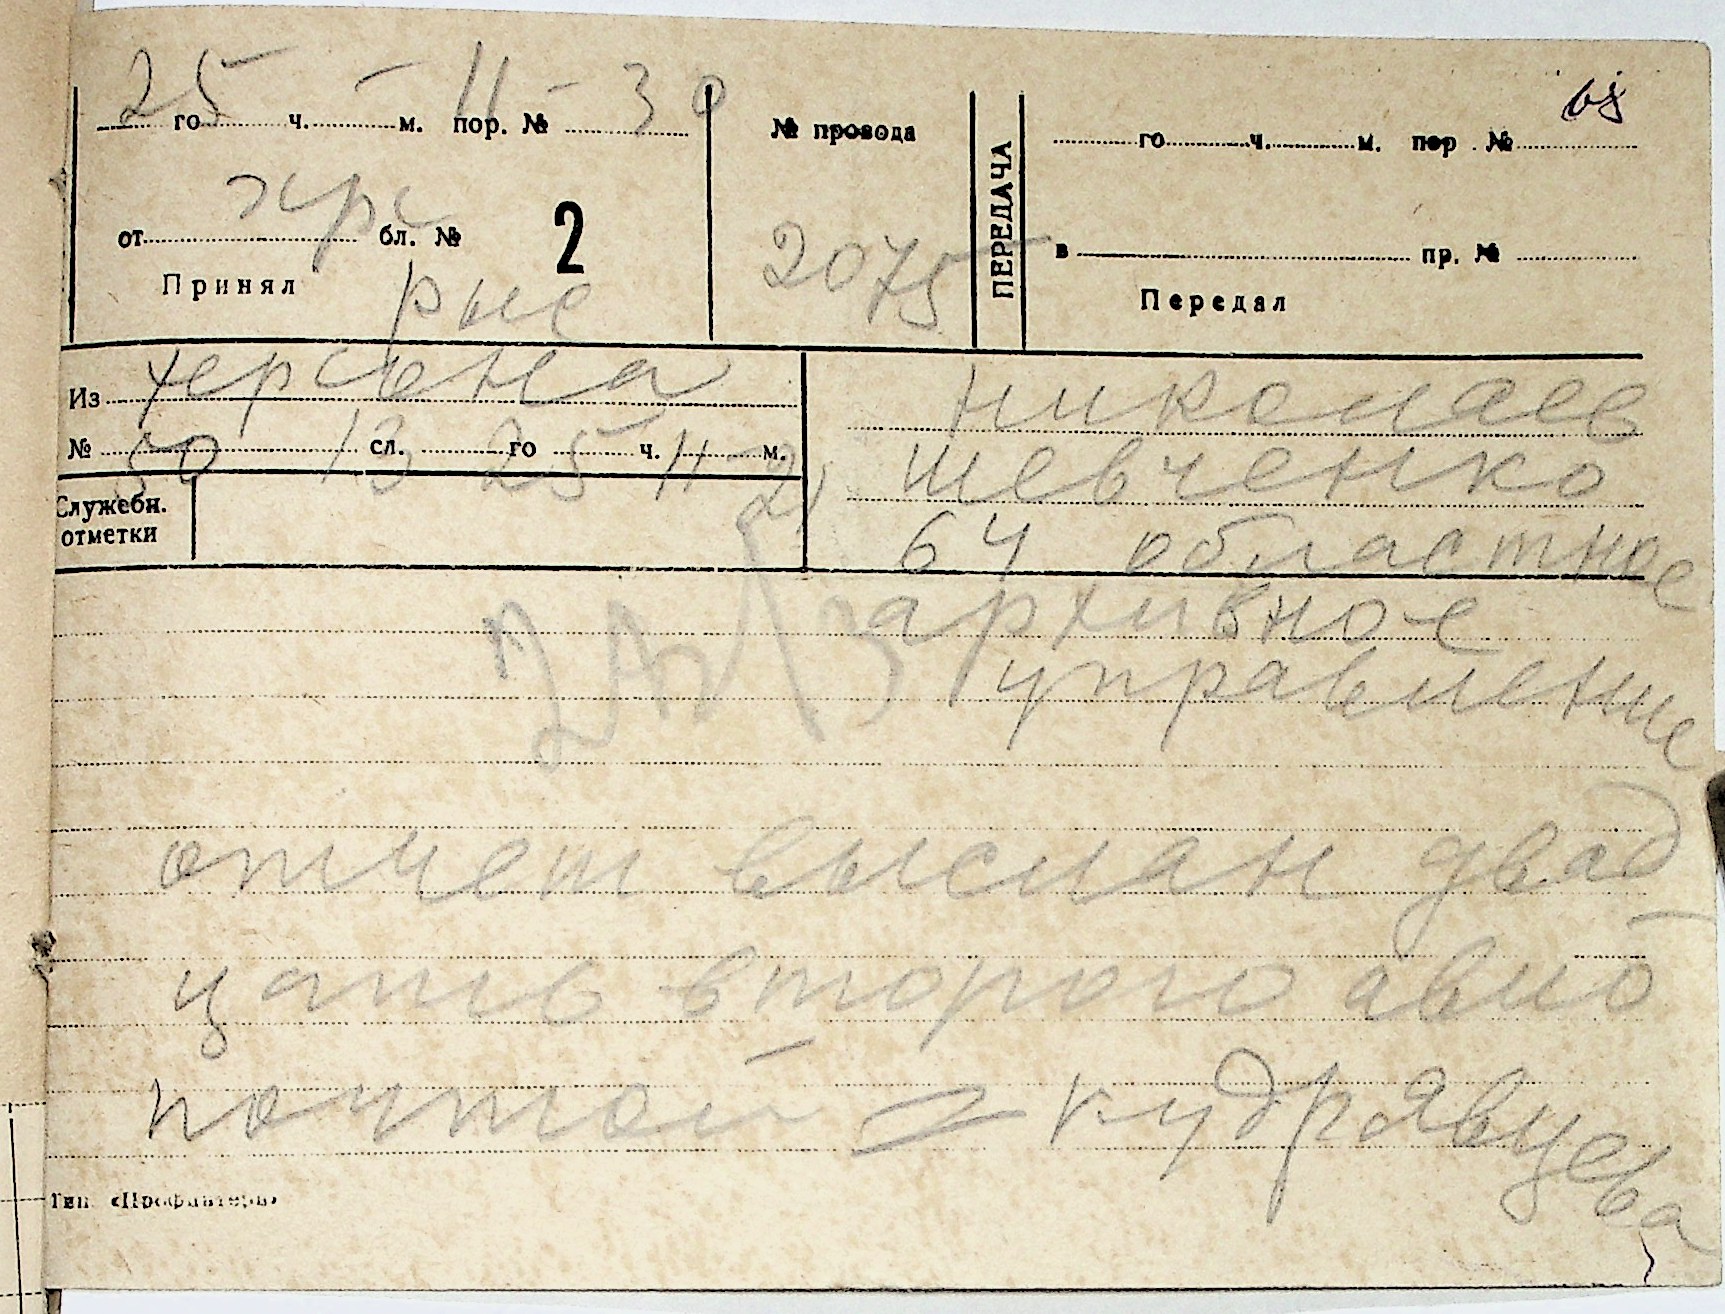 25 - 11 - 30
го ч. м. пор. №
№ провода
ПЕРЕДАЧА
го ч. м. пор. №
от хрс бл. № 2
2075
в пр. №
Принял
Передал
Из херсона
николаев
№ 50 13 сл. 25 го ч. 11-21 м.
шевченко
Служебн.
отметки
64 областное
архивное
управление
отчет выслан двад
цать второго авио
почтой = кудрявцева
Тип. «Профинтерн»